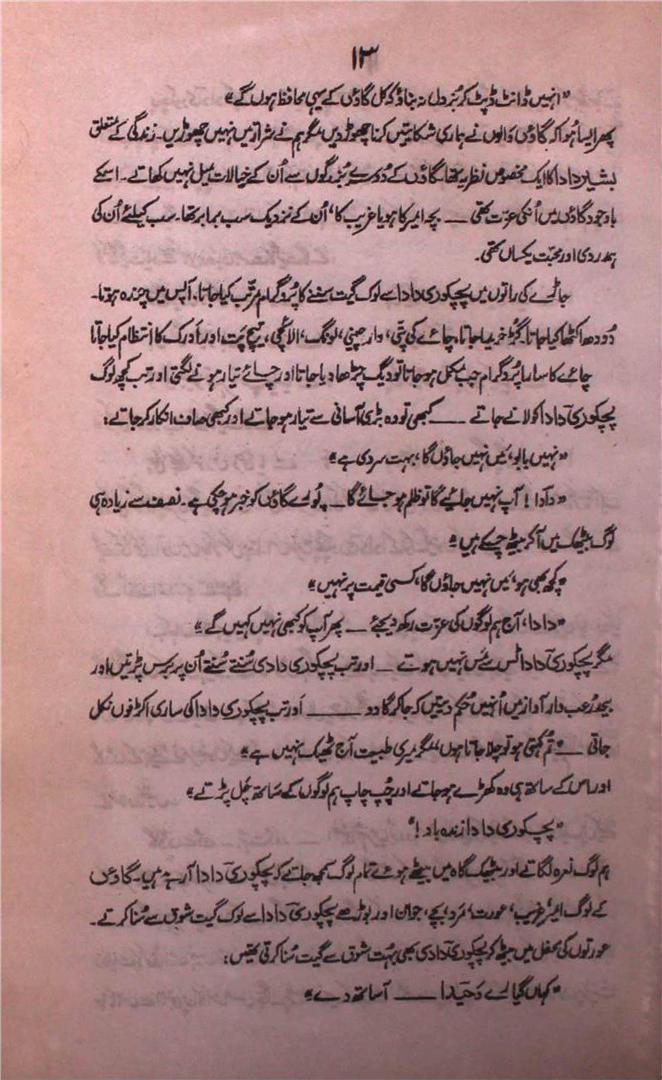 ۱۳
"انہیں ڈانٹ ڈپٹ کر بُزدل نہ بناؤ کہ کل گاؤں کے یہی محافظ ہوں گے"
پھر ایسا ہُوا کہ گاؤں والوں نے ہماری شکایتیں کرنا چھوڑ دیں مگر ہم نے شرارتیں نہیں چھوڑیں۔ زندگی کے متعلق
بشیر دادا کا ایک مخصوص نظریہ تھا۔ گاؤں کے دُوسرے بُزرگوں سے اُن کے خیالات میل نہیں کھاتے۔ اسکے
باوجود گاؤں میں اُنکی عزت تھی ـــ بچہ امیر کا ہو یا غریب کا، اُن کے نزدیک سب برابر تھا۔ سب کیلئے اُن کی
ہمدردی اور محبت یکساں تھی۔
جاڑے کی راتوں میں پچکوری دادا سے لوک گیت سننے کا پروگرام مرتّب کیا جاتا۔ آپس میں چندہ ہوتا۔
دُودھ اکٹھا کیا جاتا۔ گُڑ خریدا جاتا۔ چائے کی پتّی، دارچینی، لونگ، الائچی، تیج پتہ اور اَدرک کا انتظام کیا جاتا
چائے کا سارا پروگرام جب مکمل ہو جاتا تو دیگ چڑھا دیا جاتا اور چائے تیار ہونے لگتی اور تب کچھ لوگ
پچکوری دادا کو لانے جاتے ـــ کبھی تو وہ بڑی آسانی سے تیار ہو جاتے اور کبھی صاف انکار کر جاتے:
"نہیں بابو، میں نہیں جاؤں گا، بہت سردی ہے"
"دادا! آپ نہیں جائیے گا تو ظلم ہو جائے گا ـ پُورے گاؤں کو خبر ہو چکی ہے۔ نصف سے زیادہ ہی
لوگ بیٹھک میں آ کر بیٹھ چکے ہیں"
"کچھ بھی ہو، میں نہیں جاؤں گا، کسی قیمت پر نہیں"
"دادا، آج ہم لوگوں کی عزت رکھ دیجئے ـ پھر آپ کو کبھی نہیں کہیں گے"
مگر پچکوری دادا ٹس سے مَس نہیں ہوتے ـــ اور تب پچکوری دادی سُنتے سُنتے اُن پر برس پڑتیں اور
بیحد رُعب دار آواز میں اُنہیں حُکم دیتیں کہ جا کر گا دو ـــــ اَور تب پچکوری دادا کی ساری اکڑفوں نکل
جاتی ـ "تُم کہتی ہو تو چلا جاتا ہوں، مگر میری طبیعت آج ٹھیک نہیں ہے"
اور اس کے ساتھ ہی وہ کھڑے ہو جاتے اور چُپ چاپ ہم لوگوں کے سَاتھ چَل پڑتے"
"پچکوری دادا زندہ باد!"
ہم لوگ نعرہ لگاتے اور بیٹھک گاہ میں بیٹھے ہوئے تمام لوگ سمجھ جاتے کہ پچکوری دادا آ رہے ہیں۔ گاؤں
کے لوگ امیر، غریب، عورت، مَرد، بچے، جوان اور بوڑھے پچکوری دادا سے لوک گیت شوق سے سُنا کرتے۔
عورتوں کی محفل میں بیٹھ کر پچکوری دادی بھی بہت شوق سے گیت سُنا کرتی تھیں:
"کہاں گیا رے وَحیدا ـــ آ ساتھ دے"